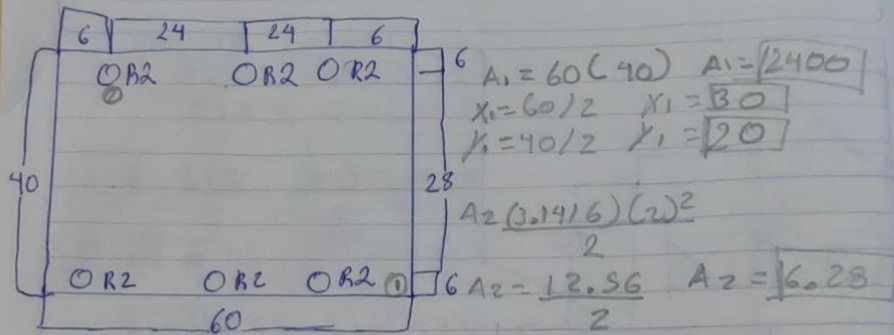 6 24 24 6
R2 R2 R2
2
6
40
28
R2 R2 R2 1
6
60
A₁ = 60(40) A₁ = 2400
X₁ = 60/2 X₁ = 30
Y₁ = 40/2 Y₁ = 20
A2 (3.1416)(2)²
2
A2 = 12.56 A2 = 6.28
2